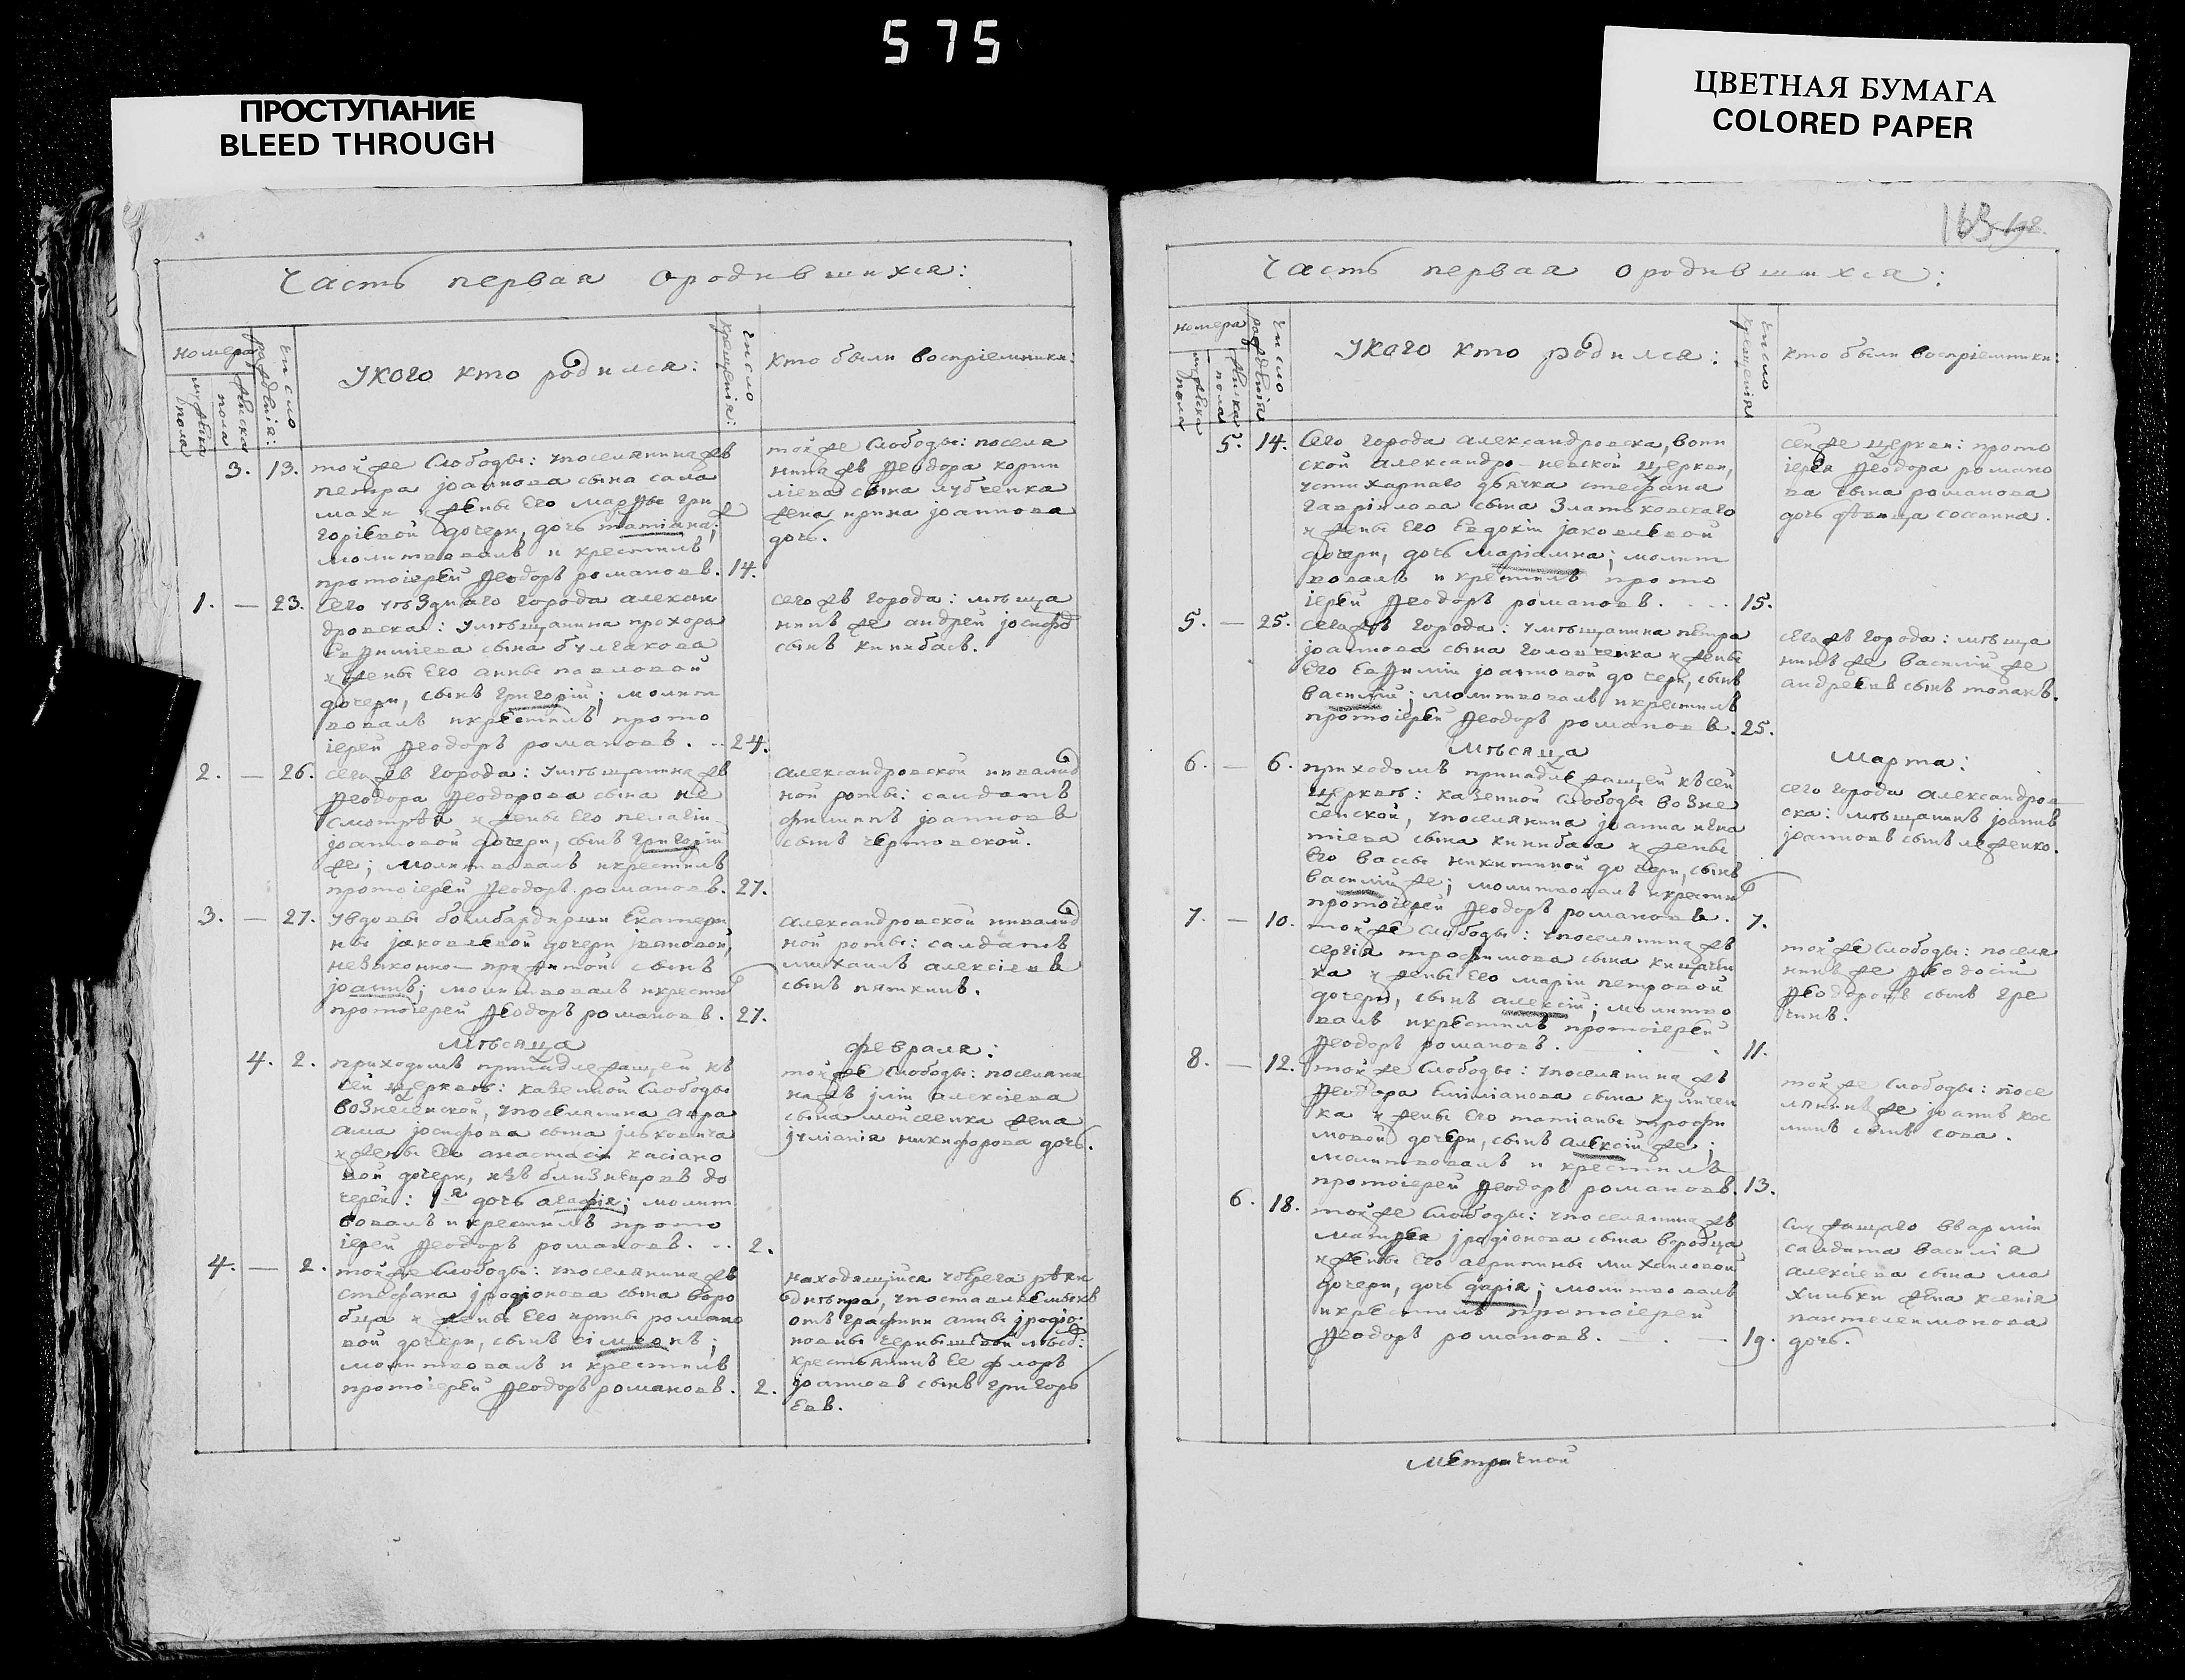 575
ПРОСТУПАНИЕ
BLEED THROUGH
ЦВЕТНАЯ БУМАГА
COLORED PAPER
Часть первая ородившихся:
номера
мужеска пола
женска пола
число рождения:
Укого кто родился:
число крещения:
кто были восприемники:
3. 13.
той же Слободы: упоселянина жъ
петра іоаннова сына сала
махи и жены его марфы гри
горіевой дочери, дочь татіана;
молитвовалъ и крестилъ
протоіерей Ѳеодоръ романовъ. 14.
той же Слободы: поселя
нина жъ Ѳеодора корни
ліева сына лубченка
жена ирина іоаннова
дочь.
1. — 23.
сего уѣзднаго города алексан
дровска: умѣщанина прохора
сына булгакова
и жены его анны павловой
дочери, сынъ григорій; молит
вовалъ и крестилъ прото
іерей Ѳеодоръ романовъ. 24.
сего жъ города: мѣща
нинъ же андрей іосифов
сынъ кинибасъ.
2. — 26.
сего жъ города: умѣщанина жъ
Ѳеодора Ѳеодорова сына не
смотрѣя и жены его пелагіи
іоанновой дочери, сынъ григорій
же; молитвовалъ и крестилъ
протоіерей Ѳеодоръ романовъ. 27.
александровской инвалид
ной роты: салдатъ
филиппъ іоанновъ
сынъ чертовской.
3. — 27.
Увдовы бомбардирши Екатери
ны іаковлевой дочери івановой,
незаконно прижитой сынъ
іоаннъ; молитвовалъ и крестил
протоіерей Ѳеодоръ романовъ. 27.
александровской инвалид
ной роты: салдатъ
михаилъ алексіевъ
сынъ пяткинъ.
Мѣсяца февраля:
4. 2.
приходомъ принадлежащей къ
сей церквѣ: казенной Слободы
вознесенской, упоселянина авра
ама іосифова сына іцковича
и жены его анастасіи касіано
вой дочери, изъ близнецовъ до
черей: 1я дочь агафія; молит
вовалъ и крестилъ прото
іерей Ѳеодоръ романовъ. 2.
той же Слободы: поселяни
на жъ іліи алексіева
сына мойсеенка жена
іуліанія никифорова дочь.
4. — 2.
той же Слободы: упоселянина жъ
стефана іродіонова сына воро
бца и жены его ирины романо
вой дочери, сынъ сімеонъ;
молитвовалъ и крестилъ
протоіерей Ѳеодоръ романовъ. 2.
находящійся уберега рѣки
днѣпра,
отъ графини анны іродіо
новны чернышевой
крестьянинъ Ее флоръ
іоанновъ сынъ григорь
евъ.
163
Часть первая ородившихся:
номера
мужеска пола
женска пола
число рождения
Укого кто родился:
число крещения
кто были восприемники:
5. 14.
Сего города александровска, воин
ской александро-невской церкви,
дьячка стефана
гавріилова сына Златковскаго
и жены его Евдокіи іаковлевой
дочери, дочь маріамна; молит
вовалъ и крестилъ прото
іерей Ѳеодоръ романовъ. 15.
сей же церкви: прото
іерея Ѳеодора романо
ва сына романова
дочь дѣвица соссанна.
5. — 25.
сего жъ города: умѣщанина петра
іоаннова сына головченка и жены
его Евфиміи іоанновой дочери, сынъ
василій; молитвовалъ и крестилъ
протоіерей Ѳеодоръ романовъ. 25.
сего жъ города: мѣща
нинъ же василій же
андреевъ сынъ топакъ.
Мѣсяца Марта:
6. — 6.
приходомъ принадлежащей къ сей
церквѣ: казенной слободы возне
сенской, упоселянина іоанна игна
тіева сына кинибаса и жены
его вассы никитиной дочери, сынъ
василій же; молитвовалъ и крестил
протоіерей Ѳеодоръ романовъ. 7.
сего города александров
ска: мѣщанинъ іоаннъ
іоанновъ сынъ леженко.
7. — 10.
той же Слободы: упоселянина жъ
сергія трофимова сына
ка и жены его маріи петровой
дочери, сынъ алексій; молитво
валъ и крестилъ протоіерей
Ѳеодоръ романовъ. 11.
той же слободы: поселя
нинъ же Ѳеодосій
Ѳеодоровъ сынъ гре
чинъ.
8. — 12.
той же Слободы: упоселянина жъ
Ѳеодора Емиліанова сына куличен
ка и жены его татіаны трофи
мовой дочери, сынъ алексій же;
молитвовалъ и крестилъ
протоіерей Ѳеодоръ романовъ. 13.
той же слободы: посе
лянинъ же іоаннъ кос
минъ сынъ сова.
6. 18.
той же Слободы: упоселянина жъ
матфея іродіонова сына воробца
и жены его агрипины михаиловой
дочери, дочь дарія; молитвовалъ
и крестилъ протоіерей
Ѳеодоръ романовъ. 19.
служащаго въ арміи
салдата василія
алексіева сына ма
хиньки жена ксенія
пантелеимонова
дочь.
Метричной